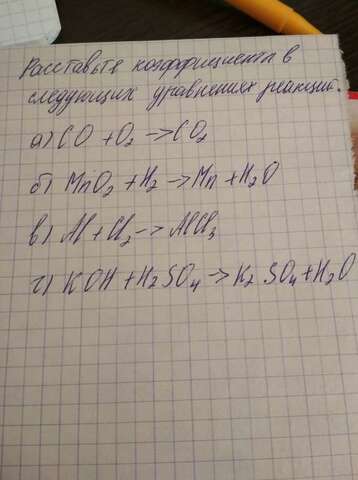 Расставьте коэффициенты в
следующих уравнениях реакций.
а) CO + O₂ → CO₂
б) MnO₂ + H₂ → Mn + H₂O
в) Al + Cl₂ → AlCl₃
г) KOH + H₂SO₄ → K₂SO₄ + H₂O